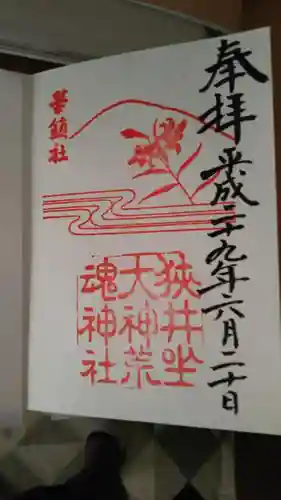 奉拝 平成二十九年六月二十日
華鎮社
狭井坐
大神荒
魂神社